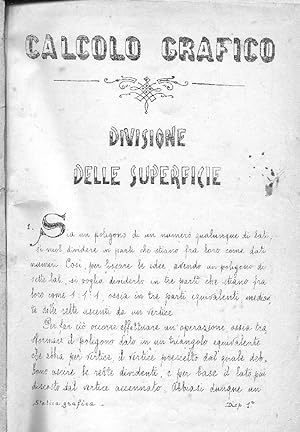 CALCOLO GRAFICO
DIVISIONE
DELLE SUPERFICIE
1. Sia un poligono di un numero qualunque di lati,
si vuol dividere in parti che stiano fra loro come dati
numeri. Così, per fissare le idee, avendo un poligono di
sette lati, si voglia dividerlo in tre parti che stiano fra
loro come 1:1:1 ossia in tre parti equivalenti mediante
rette uscenti da un vertice.
Per far ciò occorre effettuare un'operazione ossia tra-
sformare il poligono dato in un triangolo equivalente
che abbia per vertice il vertice prescelto dal quale deb-
bono uscire le rette dividenti, e per base il lato più
discosto dal vertice accennato. Abbiasi dunque un
Statica grafica. Disp. 1ª